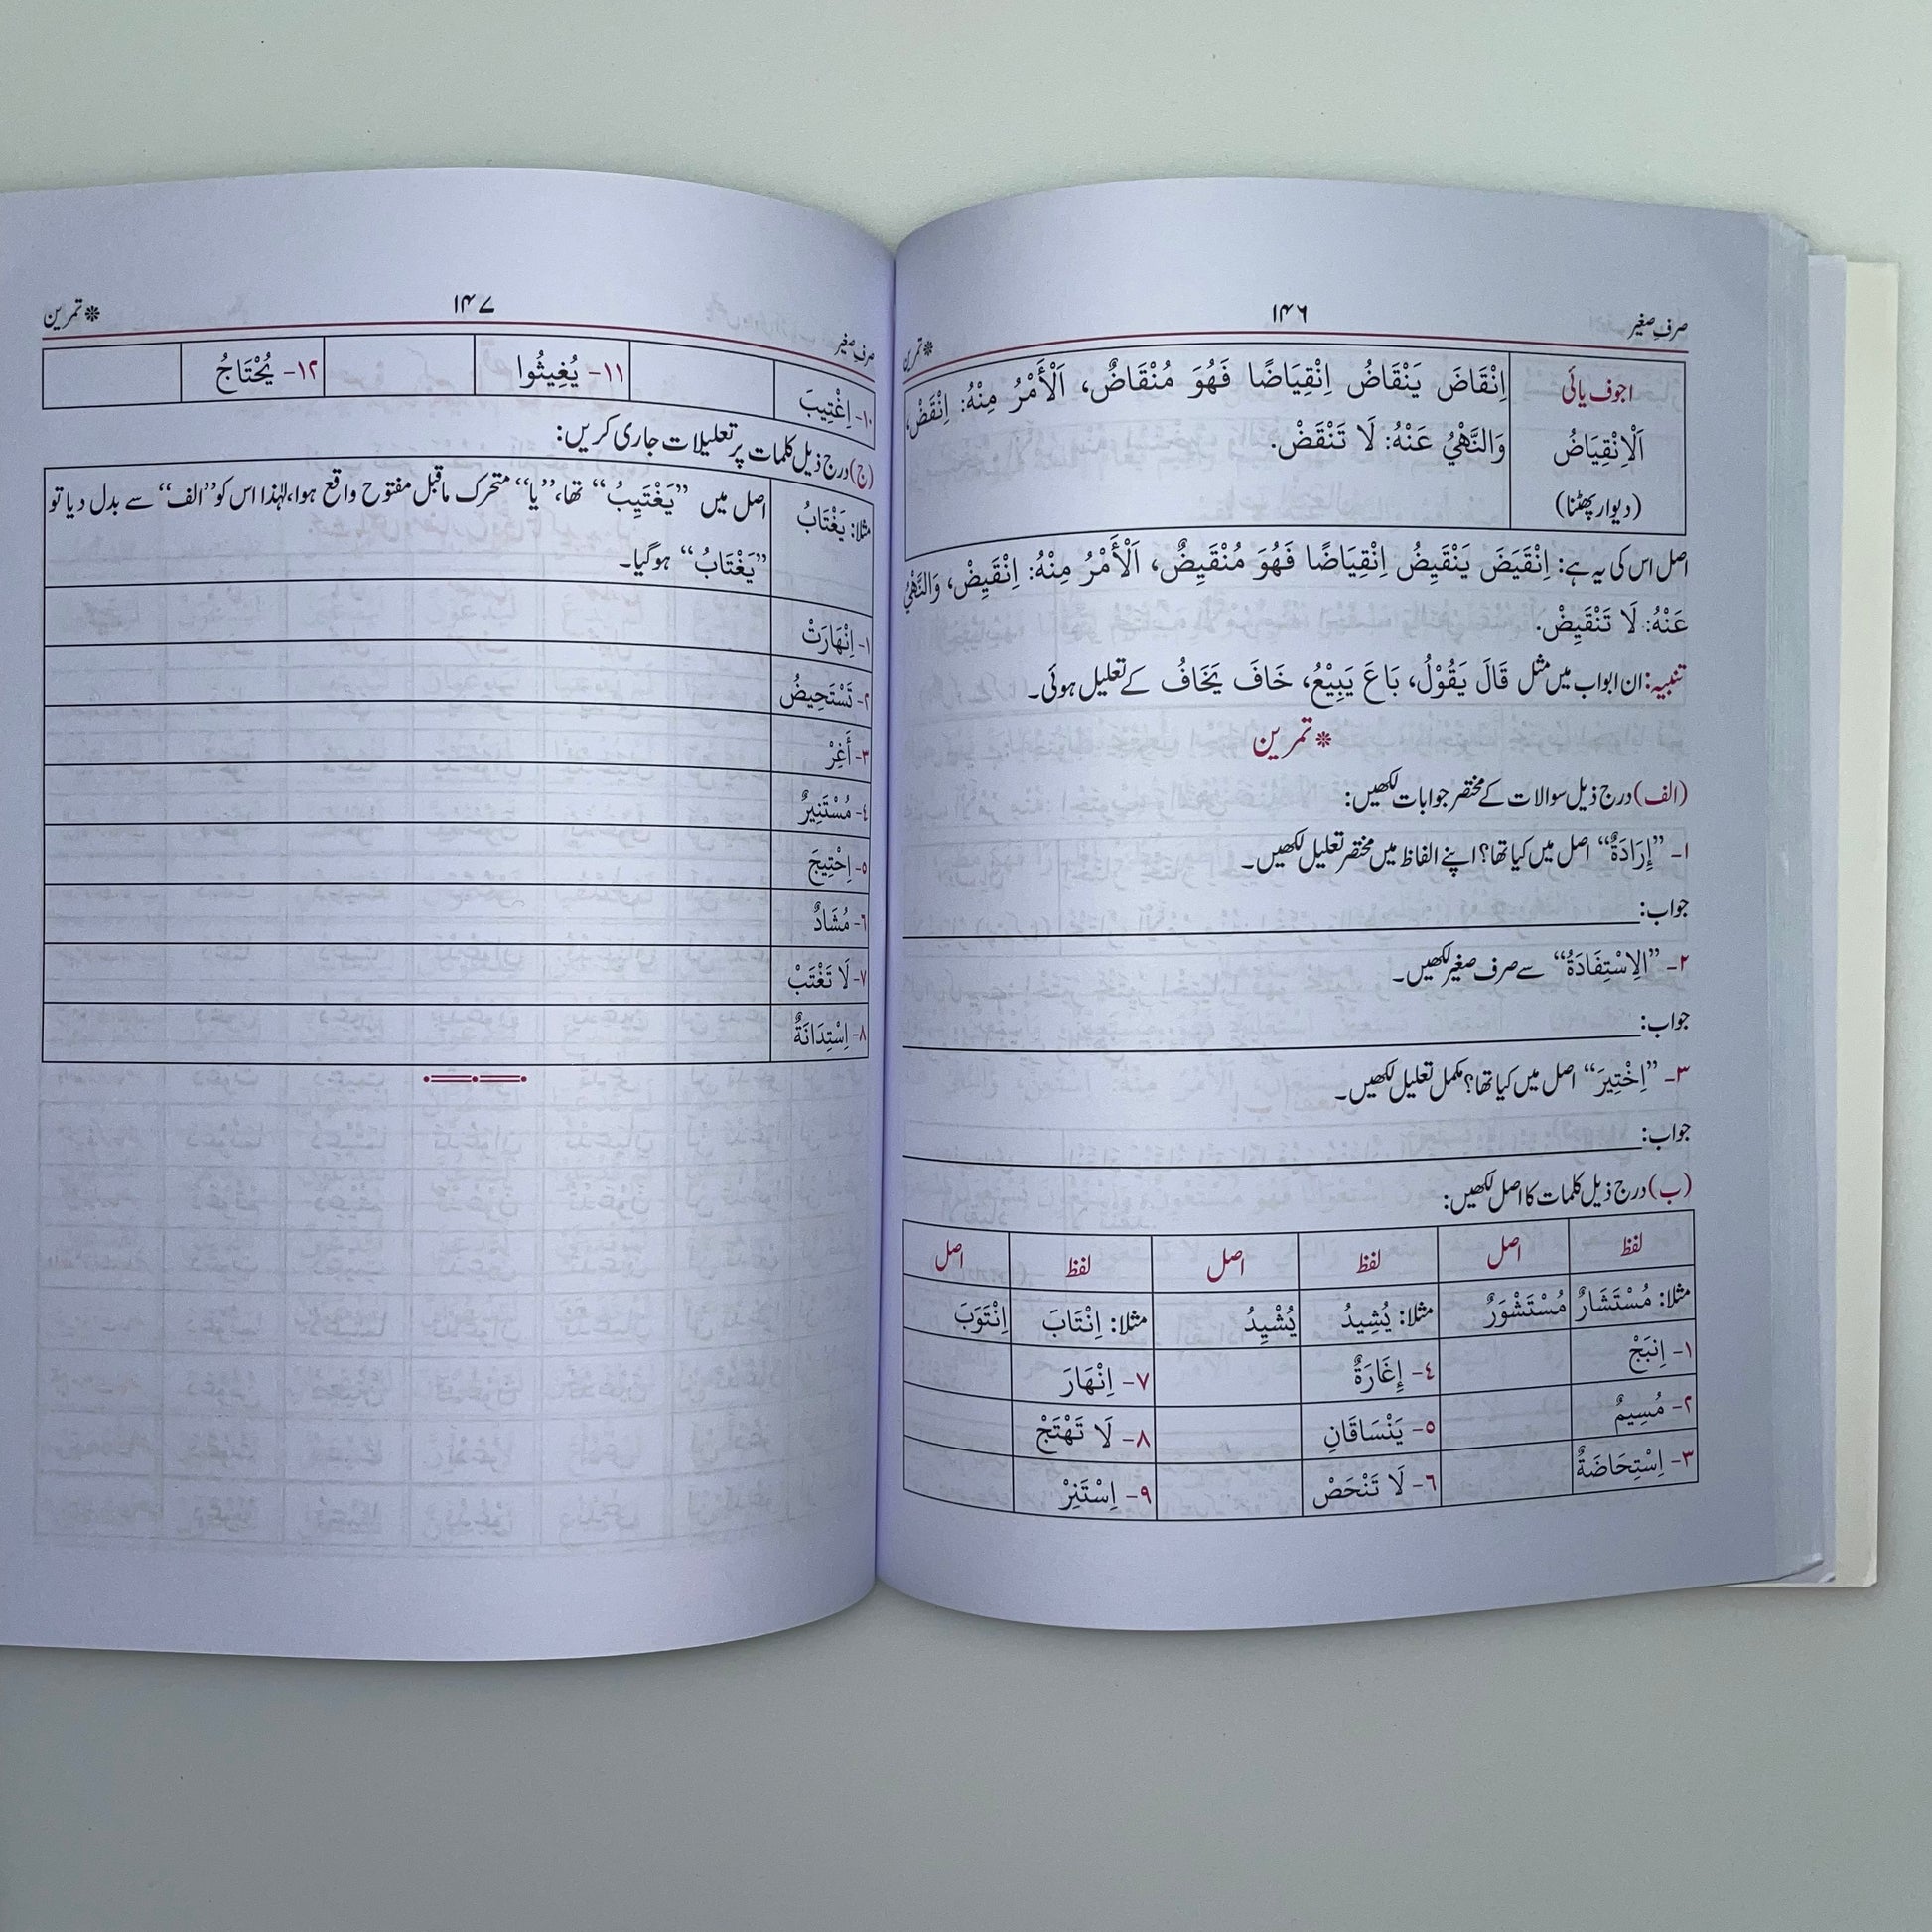 صرفِ صغیر ۱۴۶ ❊ تمرین
اجوف یائی
اَلْاِنْقِیَاضُ
(دیوار پھٹنا)
اِنْقَاضَ يَنْقَاضُ اِنْقِيَاضًا فَهُوَ مُنْقَاضٌ، اَلْأَمْرُ مِنْهُ: اِنْقَضْ،
وَالنَّهْيُ عَنْهُ: لَا تَنْقَضْ.
اصل اس کی یہ ہے: اِنْقَيَضَ يَنْقَيِضُ اِنْقِيَاضًا فَهُوَ مُنْقَيِضٌ، اَلْأَمْرُ مِنْهُ: اِنْقَيِضْ، وَالنَّهْيُ
عَنْهُ: لَا تَنْقَيِضْ.
تنبیہ: ان ابواب میں مثل قَالَ يَقُوْلُ، بَاعَ يَبِيْعُ، خَافَ يَخَافُ کے تعلیل ہوئی۔
❊ تمرین
(الف) درج ذیل سوالات کے مختصر جوابات لکھیں:
۱- ”إِرَادَةٌ“ اصل میں کیا تھا؟ اپنے الفاظ میں مختصر تعلیل لکھیں۔
جواب:
۲- ”الِاسْتِفَادَةُ“ سے صرف صغیر لکھیں۔
جواب:
۳- ”اِخْتِيرَ“ اصل میں کیا تھا؟ مکمل تعلیل لکھیں۔
جواب:
(ب) درج ذیل کلمات کا اصل لکھیں:
لفظ اصل لفظ اصل لفظ اصل
مثلا: مُسْتَشَارٌ مُسْتَشْوَرٌ مثلا: يُشِيدُ يُشْيِدُ مثلا: اِنْتَابَ اِنْتَوَبَ
۱- اِنبَجْ ٤- إِغَارَةٌ ۷- اِنْهَارَ
۲- مُسِيمٌ ٥- يَنْسَاقَانِ ۸- لَا تَهْتَجْ
۳- اِسْتِحَاضَةٌ ٦- لَا تَنْحَصْ ۹- اِسْتَنِرْ
صرفِ صغیر ۱۴۷ ❊ تمرین
۱۰- اِغْتِيبَ ۱۱- يُغِيثُوا ۱۲- يُحْتَاجُ
(ج) درج ذیل کلمات پر تعلیلات جاری کریں:
مثلا: يَغْتَابُ
اصل میں ”يَغْتَيِبُ“ تھا، ”یا“ متحرک ماقبل مفتوح واقع ہوا، لہٰذا اس کو ”الف“ سے بدل دیا تو
”يَغْتَابُ“ ہوگیا۔
۱- اِنْهَارَتْ
۲- تَسْتَحِيضُ
۳- أَغِرْ
٤- مُسْتَنِيرٌ
٥- اِحْتِيجَ
٦- مُشَادٌ
۷- لَا تَغْتَبْ
۸- اِسْتِدَانَةٌ